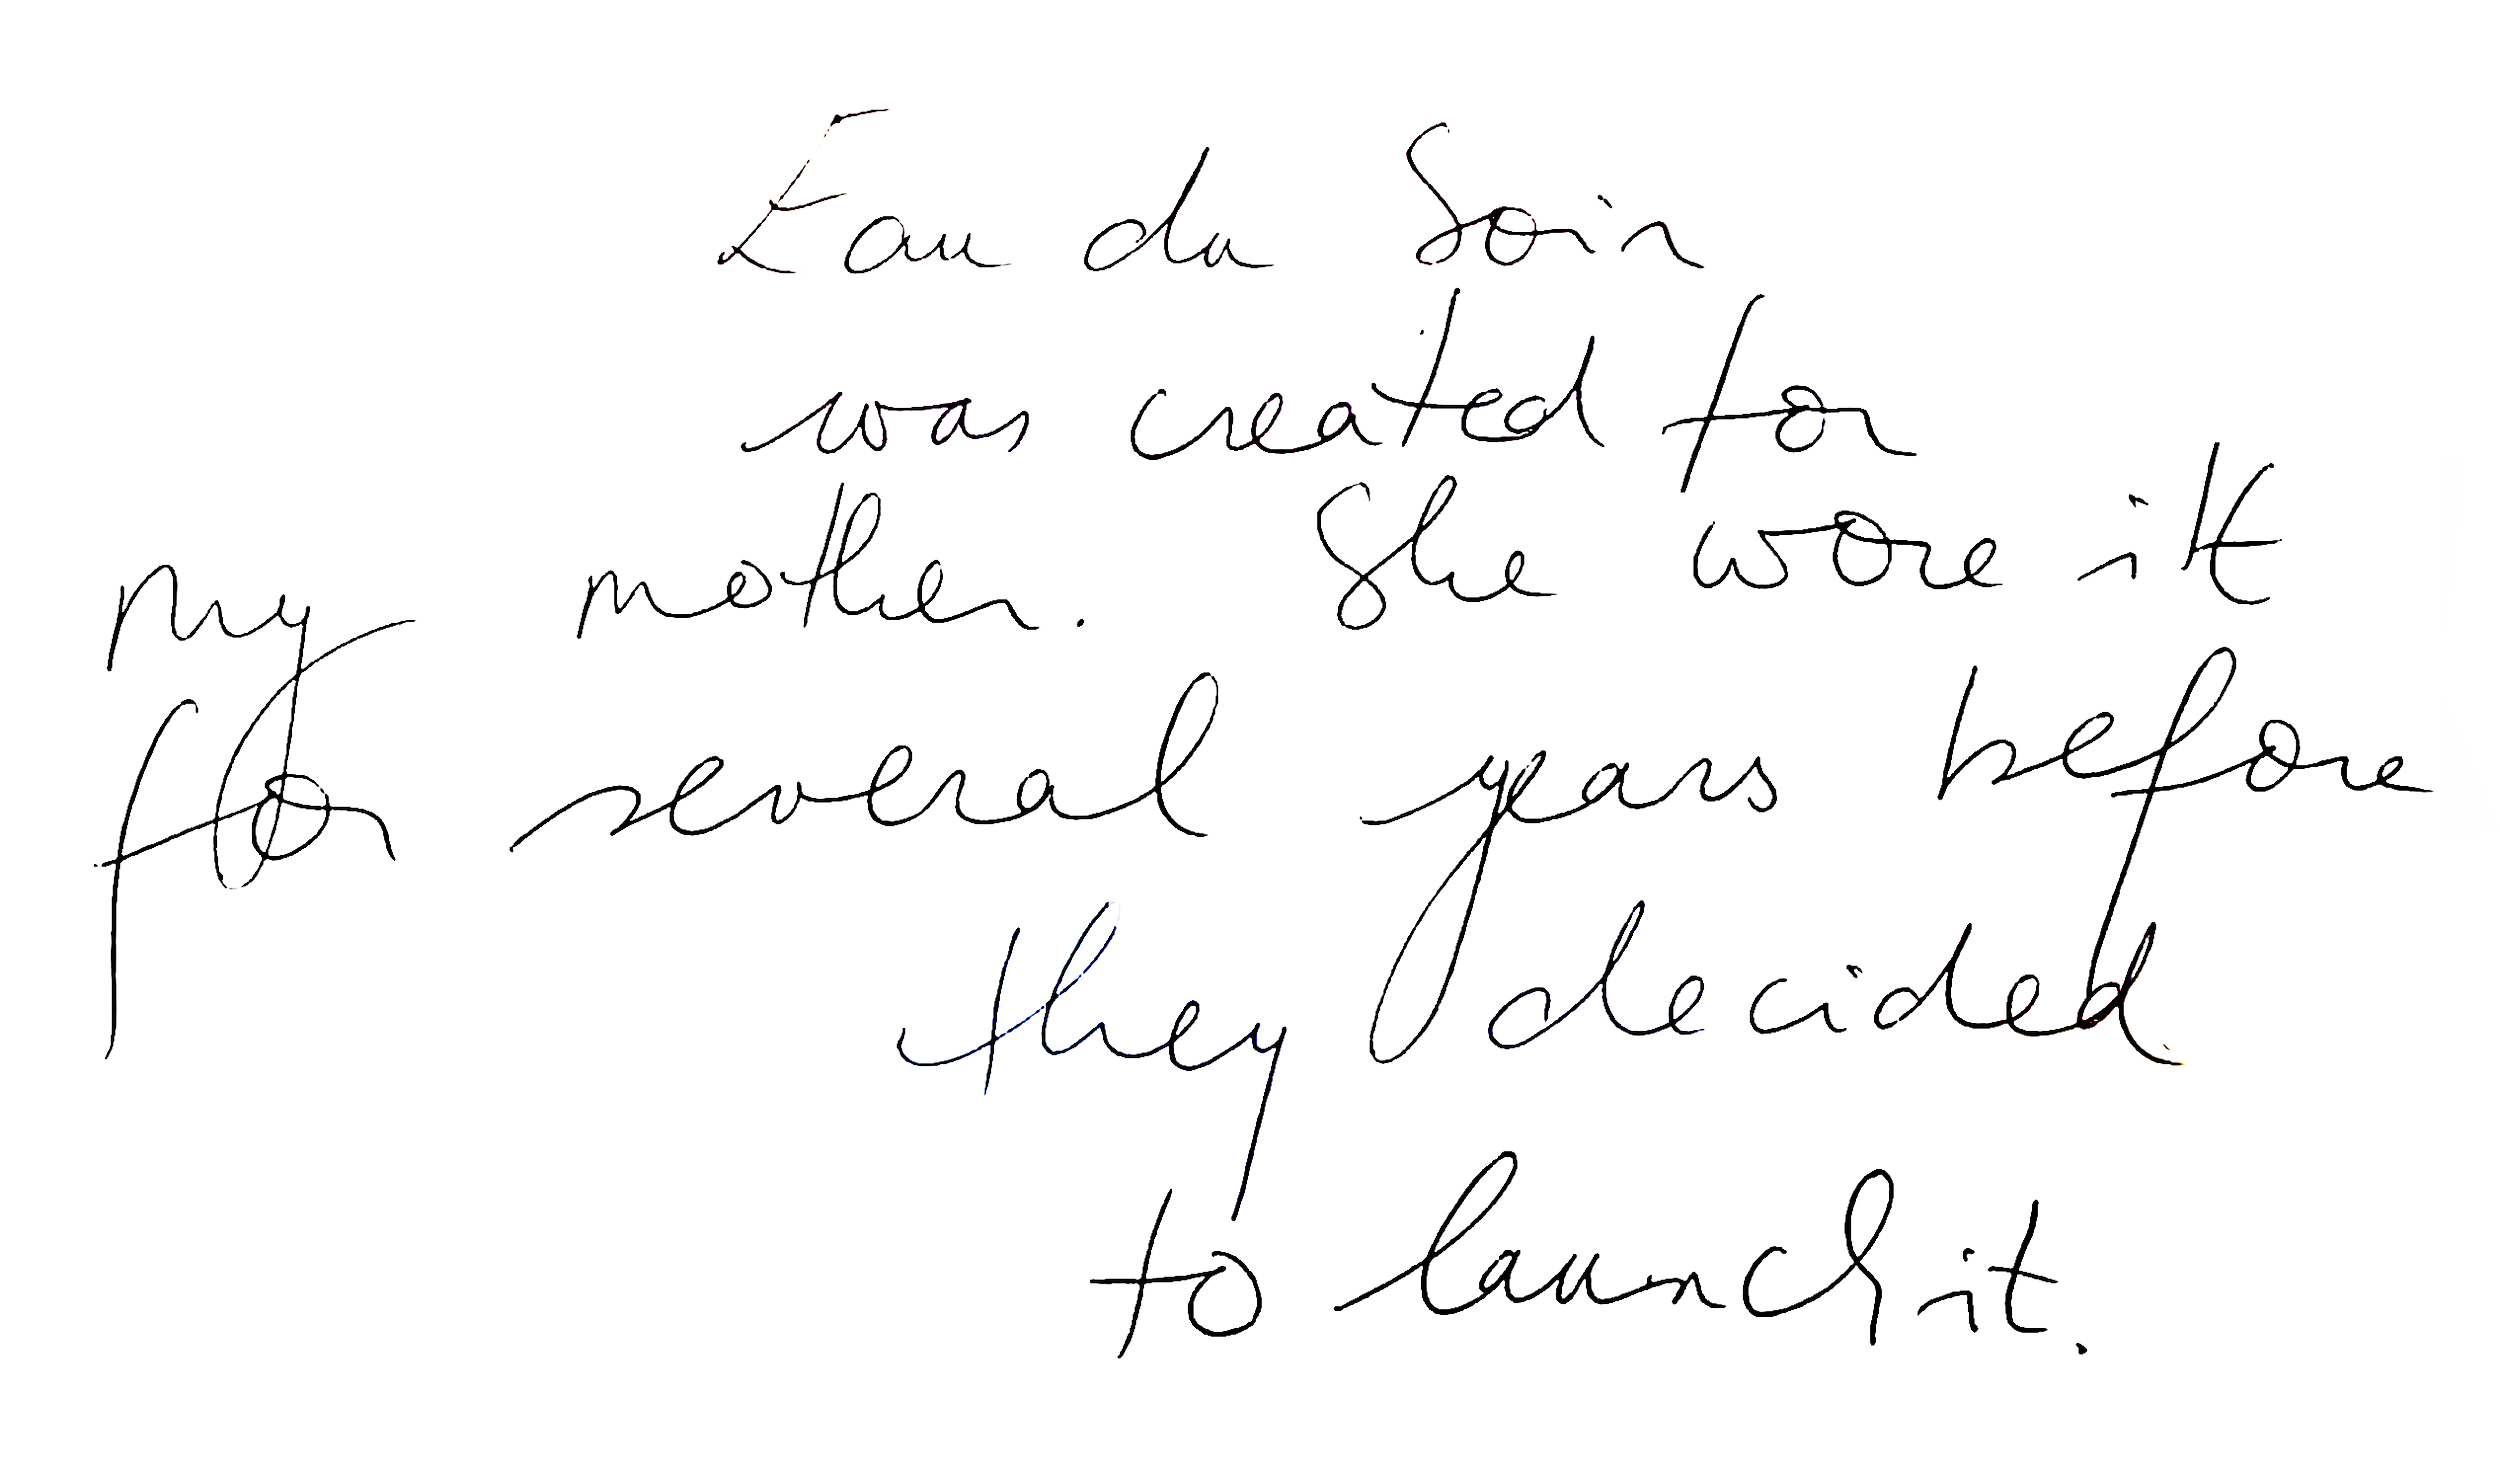 Eau du Soir
was created for
my mother. She wore it
for several years before
they decided
to launch it.